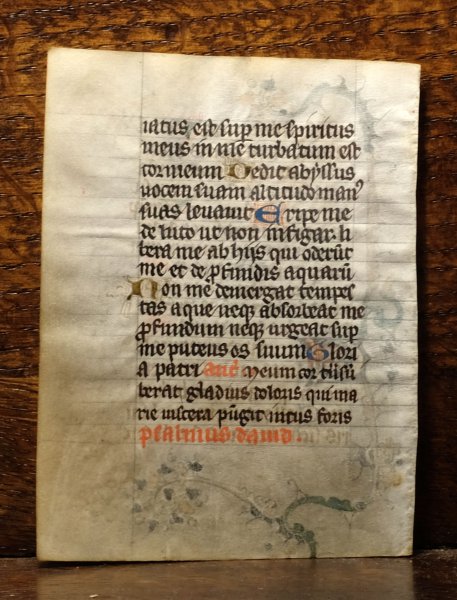 iatus est sup me spiritus
meus in me turbatum est
cor meum Dedit abyssus
uocem suam altitudo man⁹
suas leuauit Eripe me
de luto ut non infigar · li
bera me ab hijs qui oderūt
me et de ꝓfundis aquarū
Non me demergat tempes
tas aque neqꝫ absorbeat me
ꝓfundum neqꝫ urgeat sup
me puteus os suum Glori
a patri añt Meum cor
berat gladius doloris qui ma
rie uiscera pūgit intus foris
psalmus dauid ·